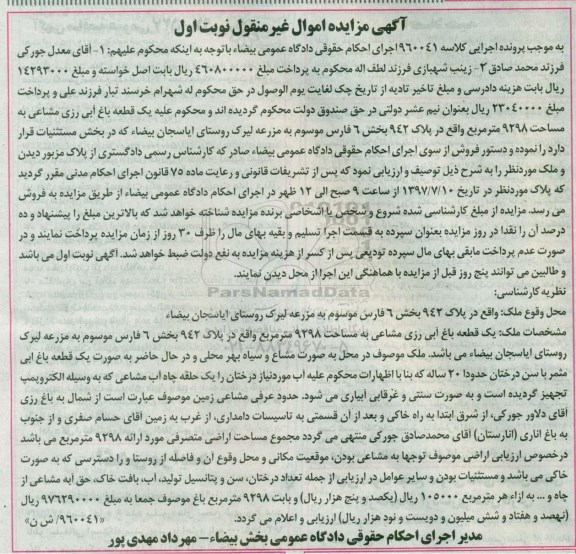 آگهی مزایده اموال غیر منقول نوبت اول
به موجب پرونده اجرایی کلاسه ۹۶۰۰۴۱ اجرای احکام حقوقی دادگاه عمومی بیضاء با توجه به اینکه محکوم علیهم: ۱- آقای معدل جورکی
فرزند محمد صادق ۲- زینب شهبازی فرزند لطف اله محکوم به پرداخت مبلغ ۴۶۰۸۰۰۰۰۰ ریال بابت اصل خواسته و مبلغ ۱۴۲۹۳۰۰۰
ریال بابت هزینه دادرسی و مبلغ تاخیر تادیه از تاریخ چک لغایت یوم الوصول در حق محکوم له شهرام خرسند تبار فرزند علی و پرداخت
مبلغ ۲۳۰۴۰۰۰۰ ریال بعنوان نیم عشر دولتی در حق صندوق دولت محکوم گردیده اند و محکوم علیه یک قطعه باغ آبی رزی مشاعی به
مساحت ۹۲۹۸ مترمربع واقع در پلاک ۹۴۲ بخش ۶ فارس موسوم به مزرعه لیرک روستای ایاسجان بیضاء که در بخش مستثنیات قرار
دارد را نموده و دستور فروش از سوی اجرای احکام حقوقی دادگاه عمومی بیضاء صادر که کارشناس رسمی دادگستری از پلاک مزبور دیدن
و ملک موردنظر را به شرح ذیل توصیف و ارزیابی نمود که پس از تشریفات قانونی و رعایت ماده ۷۵ قانون اجرای احکام مدنی مقرر گردید
که پلاک موردنظر در تاریخ ۱۳۹۷/۷/۱۰ از ساعت ۹ صبح الی ۱۲ ظهر در اجرای احکام دادگاه عمومی بیضاء از طریق مزایده به فروش
می رسد. مزایده از مبلغ کارشناسی شده شروع و شخص یا اشخاصی برنده مزایده شناخته خواهد شد که بالاترین مبلغ را پیشنهاد و ده
درصد آن را نقدا در روز مزایده بعنوان سپرده به قسمت اجرا تسلیم و بقیه بهای مال را ظرف ۳۰ روز از زمان مزایده پرداخت نمایند و در
صورت عدم پرداخت مابقی بهای مال سپرده تودیعی پس از کسر از هزینه مزایده به نفع دولت ضبط خواهد شد. آگهی نوبت اول می باشد
و طالبین می توانند پنج روز قبل از مزایده با هماهنگی این اجرا از محل دیدن نمایند.
ParsNamadData
نظریه کارشناسی:
محل وقوع ملک: واقع در پلاک ۹۴۲ بخش ۶ فارس موسوم به مزرعه لیرک روستای ایاسجان بیضاء
مشخصات ملک: یک قطعه باغ آبی رزی مشاعی به مساحت ۹۲۹۸ مترمربع واقع در پلاک ۹۴۲ بخش ۶ فارس موسوم به مزرعه لیرک
روستای ایاسجان بیضاء می باشد. ملک موصوف در محل به صورت مشاع و سیاه بهر محلی و در حال حاضر به صورت یک قطعه باغ آبی
مثمر با سن درختان حدودا ۲۰ ساله که بنا با اظهارات محکوم علیه آب موردنیاز درختان را یک حلقه چاه آب مشاعی که به وسیله الکتروپمپ
تجهیز گردیده است و به صورت سنتی و غرقابی آبیاری می شود. حدود عرفی مشاعی زمین موصوف عبارت است از شمال به باغ رزی
آقای دلاور جورکی، از شرق ابتدا به راه خاکی و بعد از آن قسمتی به تاسیسات دامداری، از غرب به زمین آقای حسام صفری و از جنوب
به باغ اناری (انارستان) آقای محمدصادق جورکی منتهی می گردد مجموع مساحت اراضی متصرفی مورد ارائه ۹۲۹۸ مترمربع می باشد
درخصوص ارزیابی اراضی موصوف توجها به مشاعی بودن، موقعیت مکانی و محل وقوع آن و فاصله از روستا و را دسترسی که به صورت
خاکی می باشد و مستثنیات بودن و سایر عوامل در ارزیابی از جمله تعداد درختان، سن و پتانسیل تولید، آب، بافت خاک، حق آبه مشاعی از
چاه و ... به ازاء هر مترمربع ۱۰۵۰۰۰ ریال (یکصد و پنج هزار ریال) و بابت ۹۲۹۸ مترمربع باغ موصوف جمعا به مبلغ ۹۷۶۲۹۰۰۰۰ ریال
(نهصد و هفتاد و شش میلیون و دویست و نود هزار ریال) ارزیابی و اعلام می گردد. «۹۶۰۰۴۱/ ش ن»
مدیر اجرای احکام حقوقی دادگاه عمومی بخش بیضاء - مهرداد مهدی پور